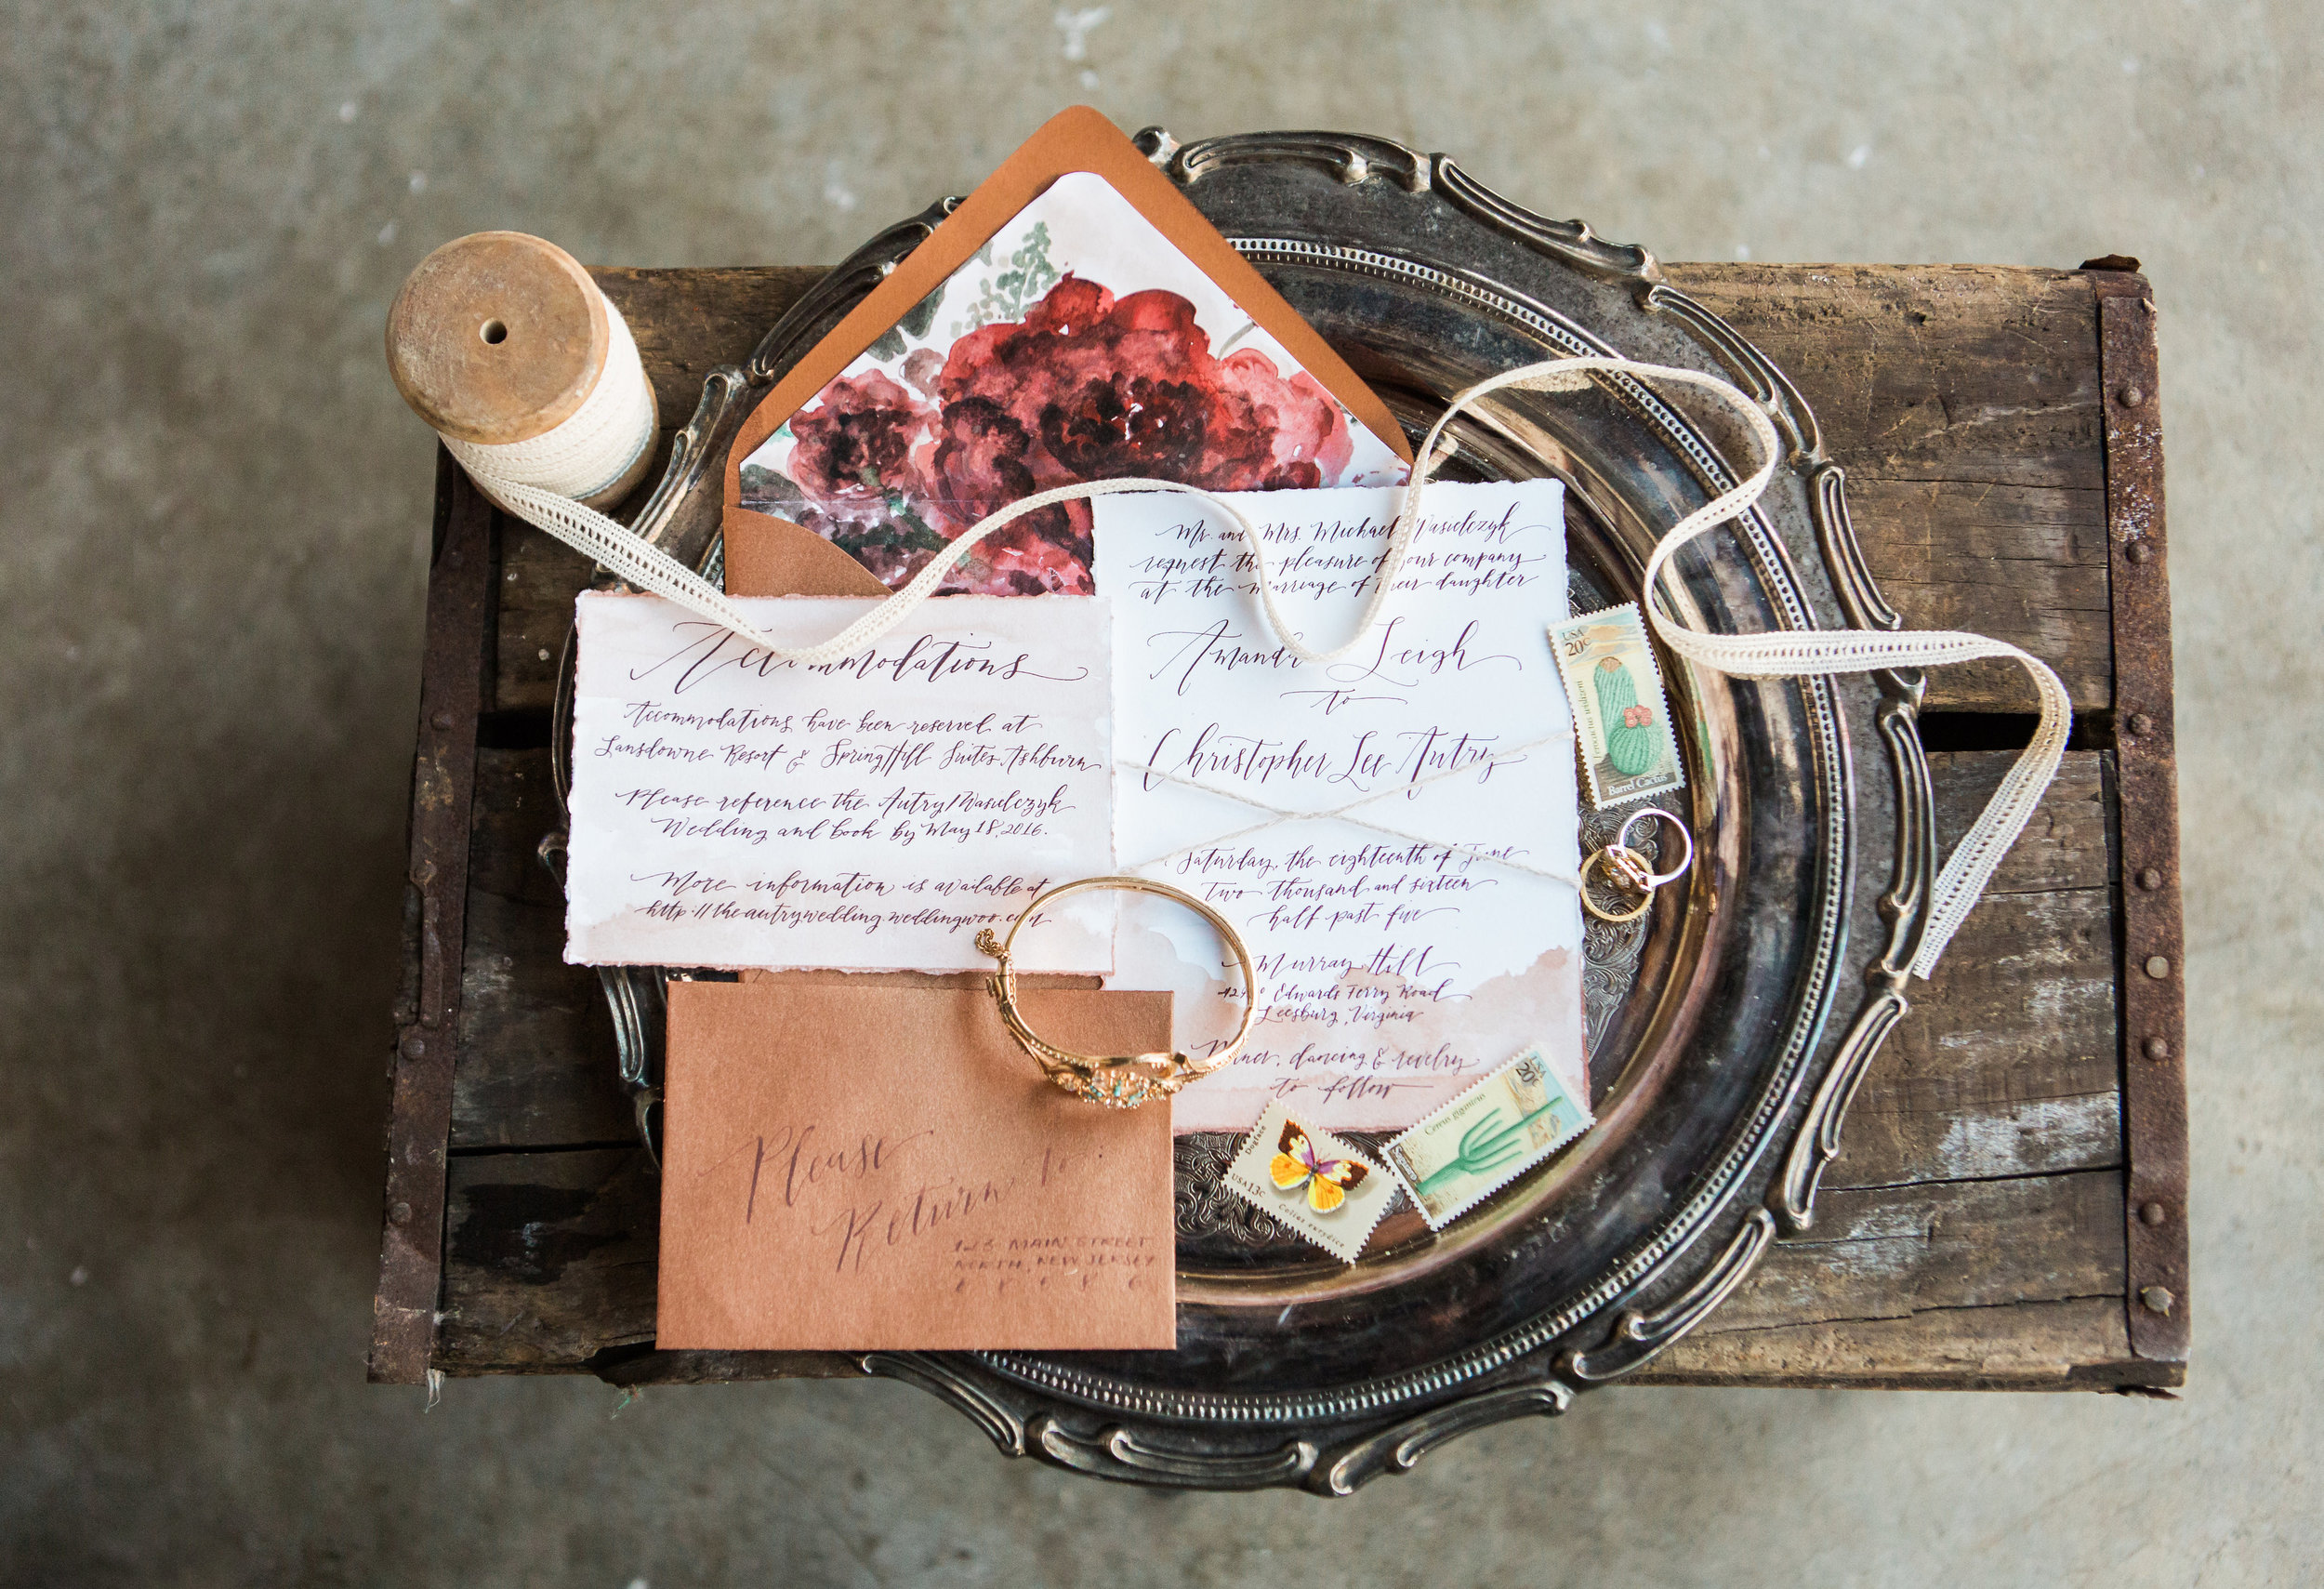 Accommodations
Accommodations have been reserved at
Lansdowne Resort & SpringHill Suites Ashburn
Please reference the Autry/Wasielczyk
Wedding and book by May 18, 2016.
More information is available at
http://theautrywedding.weddingwoo.com
Mr. and Mrs. Michael Wasielczyk
request the pleasure of your company
at the marriage of their daughter
Amanda Leigh
to
Christopher Lee Autry
Saturday, the eighteenth of June
two thousand and sixteen
half past five
Murray Hill
Edwards Ferry Road
Leesburg, Virginia
Dinner, dancing & revelry
to follow
USA
20c
Barrel Cactus
Dogface
USA 13c
Colias eurydice
USA
20c
Cereus giganteus
Saguaro
Please
Return to:
123 MAIN STREET
NORTH, NEW JERSEY